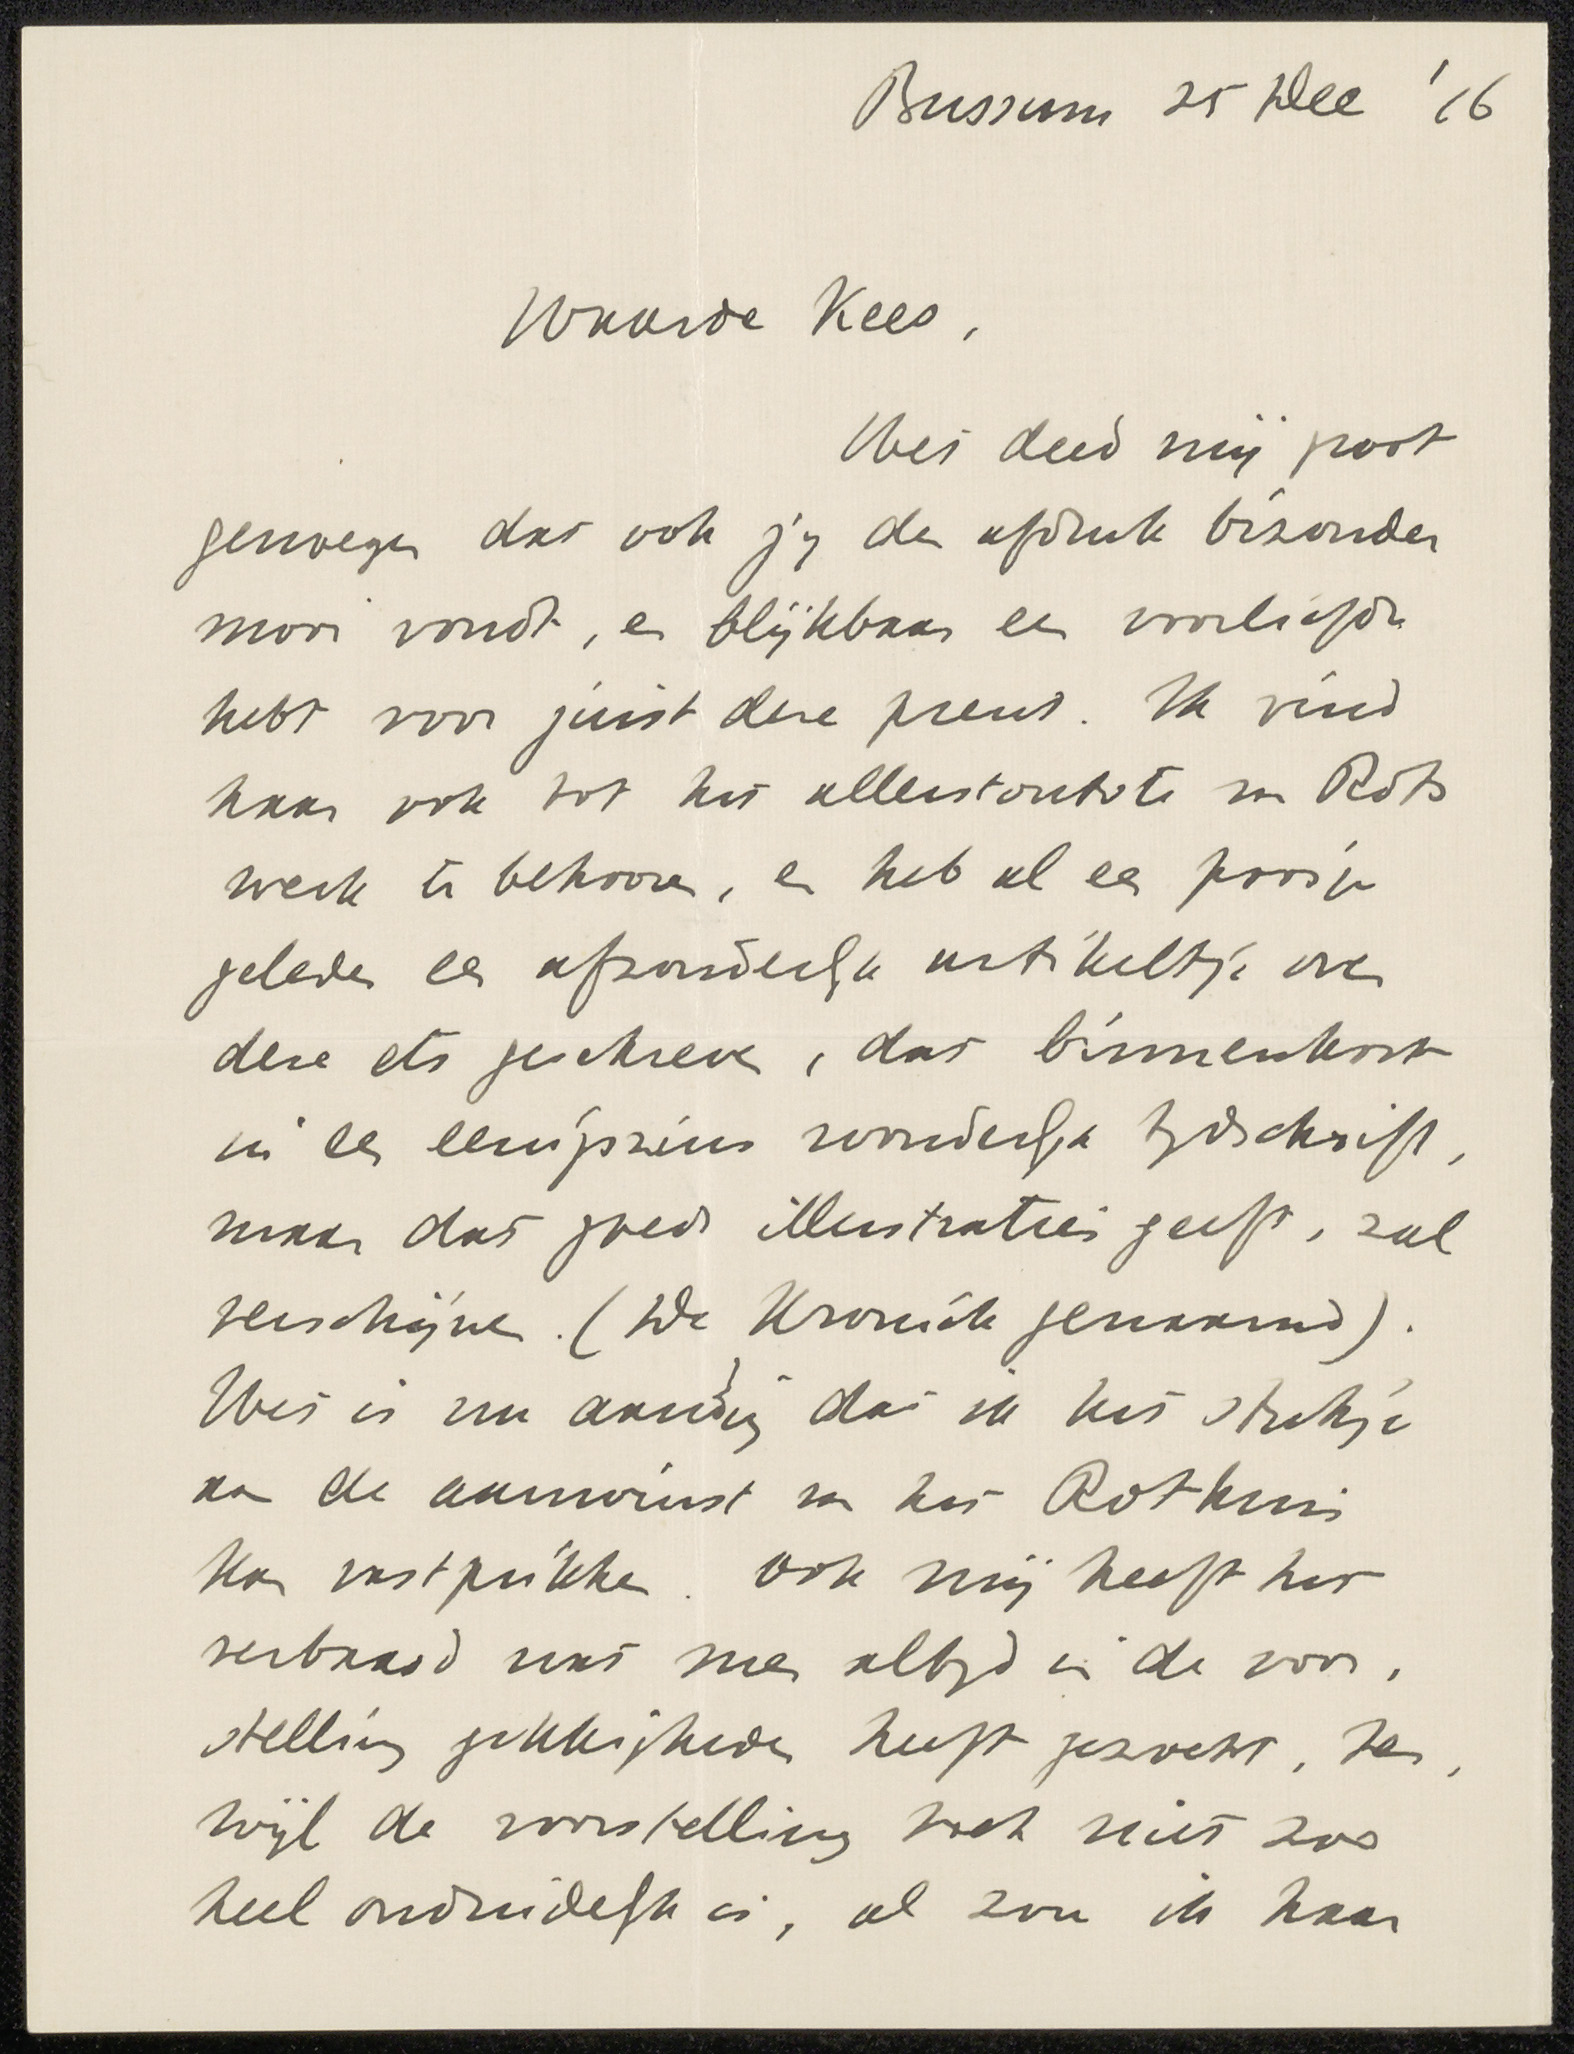 Bussum 25 Dec '16
Waarde Kees,
Het deed mij groot
genoegen dat ook jij den afdruk bizonder
mooi vondt, en blijkbaar een voorliefde
hebt voor juist deze prent. Ik vind
haar ook tot het allerstoutste van Rdts
werk te behooren, en heb al een poosje
geleden een afzonderlijk artikeltje over
deze ets geschreven, dat binnenkort
in een eenigszins wonderlijk tijdschrift,
maar dat goede illustraties geeft, zal
verschijnen. (De Kroniek genaamd).
Het is nu aardig dat ik het stukje
aan de aanwinst van het Rdthuis
kan vastprikken. Ook mij heeft het
verbaasd wat men altijd in de voor,
stelling gekkigheden heeft gezocht, ter,
wijl de voorstelling toch niet zoo
heel onduidelijk is, al zou ik haar